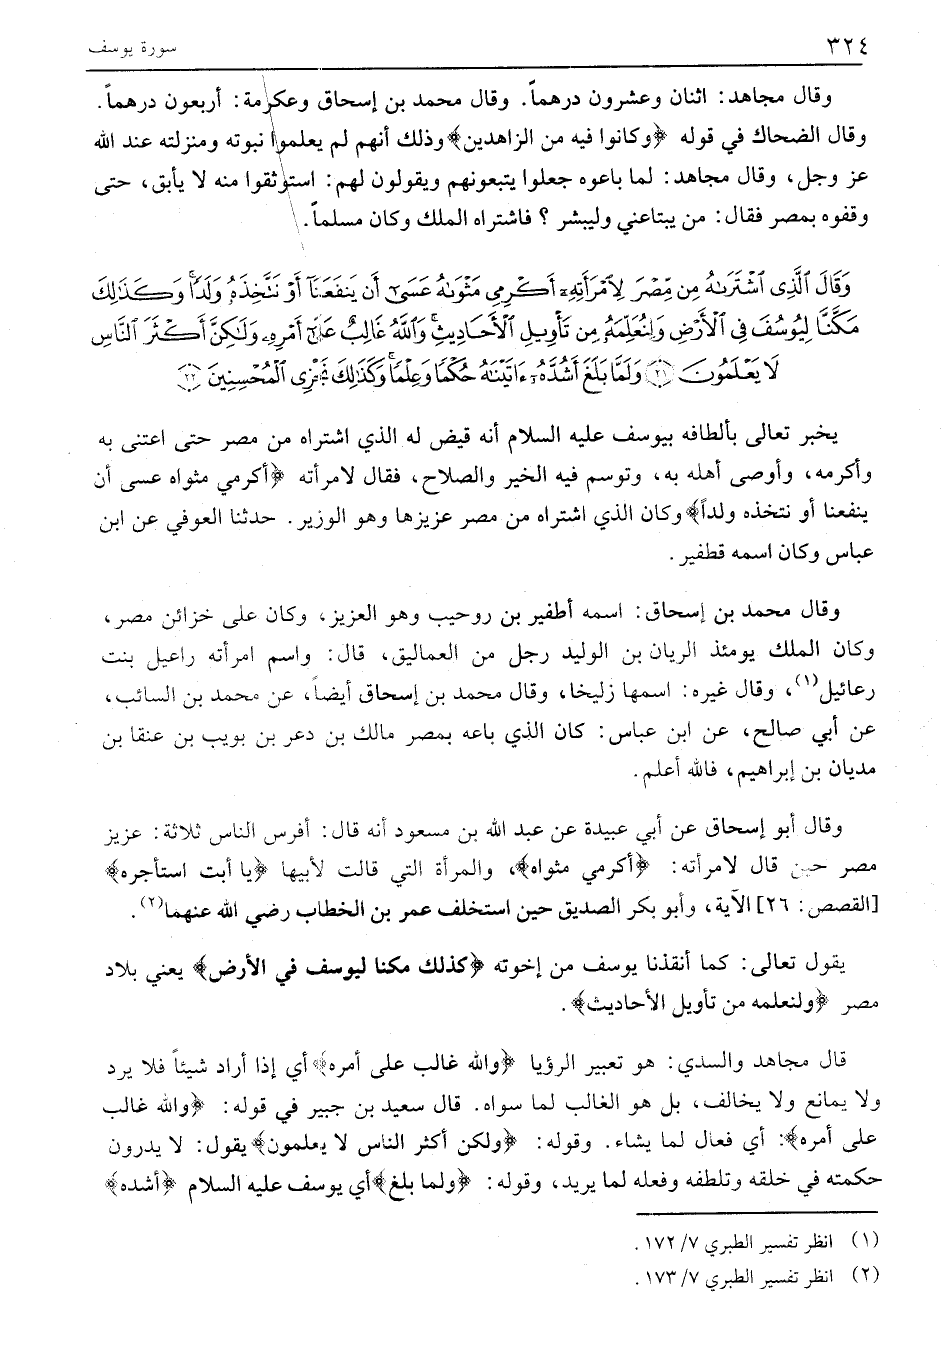 ٣٢٤ سورة يوسف
وقال مجاهد: اثنان وعشرون درهماً. وقال محمد بن إسحاق وعكرمة: أربعون درهماً.
وقال الضحاك في قوله ﴿وكانوا فيه من الزاهدين﴾ وذلك أنهم لم يعلموا نبوته ومنزلته عند الله
عز وجل، وقال مجاهد: لما باعوه جعلوا يتبعونهم ويقولون لهم: استوثقوا منه لا يأبق، حتى
وقفوه بمصر فقال: من يبتاعني وليبشر ؟ فاشتراه الملك وكان مسلماً.
وَقَالَ ٱلَّذِى ٱشْتَرَىٰهُ مِن مِّصْرَ لِٱمْرَأَتِهِۦٓ أَكْرِمِى مَثْوَىٰهُ عَسَىٰٓ أَن يَنفَعَنَآ أَوْ نَتَّخِذَهُۥ وَلَدًا ۚ وَكَذَٰلِكَ
مَكَّنَّا لِيُوسُفَ فِى ٱلْأَرْضِ وَلِنُعَلِّمَهُۥ مِن تَأْوِيلِ ٱلْأَحَادِيثِ ۚ وَٱللَّهُ غَالِبٌ عَلَىٰٓ أَمْرِهِۦ وَلَٰكِنَّ أَكْثَرَ ٱلنَّاسِ
لَا يَعْلَمُونَ ﴿٢١﴾ وَلَمَّا بَلَغَ أَشُدَّهُۥٓ ءَاتَيْنَٰهُ حُكْمًا وَعِلْمًا ۚ وَكَذَٰلِكَ نَجْزِى ٱلْمُحْسِنِينَ ﴿٢٢﴾
يخبر تعالى بألطافه بيوسف عليه السلام أنه قيض له الذي اشتراه من مصر حتى اعتنى به
وأكرمه، وأوصى أهله به، وتوسم فيه الخير والصلاح، فقال لامرأته ﴿أكرمي مثواه عسى أن
ينفعنا أو نتخذه ولداً﴾ وكان الذي اشتراه من مصر عزيزها وهو الوزير. حدثنا العوفي عن ابن
عباس وكان اسمه قطفير.
وقال محمد بن إسحاق: اسمه أطفير بن روحيب وهو العزيز، وكان على خزائن مصر،
وكان الملك يومئذ الريان بن الوليد رجل من العماليق، قال: واسم امرأته راعيل بنت
رعائيل(١)، وقال غيره: اسمها زليخا، وقال محمد بن إسحاق أيضاً، عن محمد بن السائب،
عن أبي صالح، عن ابن عباس: كان الذي باعه بمصر مالك بن دعر بن بويب بن عنقا بن
مديان بن إبراهيم، فالله أعلم.
وقال أبو إسحاق عن أبي عبيدة عن عبد الله بن مسعود أنه قال: أفرس الناس ثلاثة: عزيز
مصر حين قال لامرأته: ﴿أكرمي مثواه﴾، والمرأة التي قالت لأبيها ﴿يا أبت استأجره﴾
[القصص: ٢٦] الآية، وأبو بكر الصديق حين استخلف عمر بن الخطاب رضي الله عنهما(٢).
يقول تعالى: كما أنقذنا يوسف من إخوته ﴿كذلك مكنا ليوسف في الأرض﴾ يعني بلاد
مصر ﴿ولنعلمه من تأويل الأحاديث﴾.
قال مجاهد والسدي: هو تعبير الرؤيا ﴿والله غالب على أمره﴾ أي إذا أراد شيئاً فلا يرد
ولا يمانع ولا يخالف، بل هو الغالب لما سواه. قال سعيد بن جبير في قوله: ﴿والله غالب
على أمره﴾: أي فعال لما يشاء. وقوله: ﴿ولكن أكثر الناس لا يعلمون﴾ يقول: لا يدرون
حكمته في خلقه وتلطفه وفعله لما يريد، وقوله: ﴿ولما بلغ﴾ أي يوسف عليه السلام ﴿أشده﴾
(١) انظر تفسير الطبري ١٧٢/٧.
(٢) انظر تفسير الطبري ١٧٣/٧.